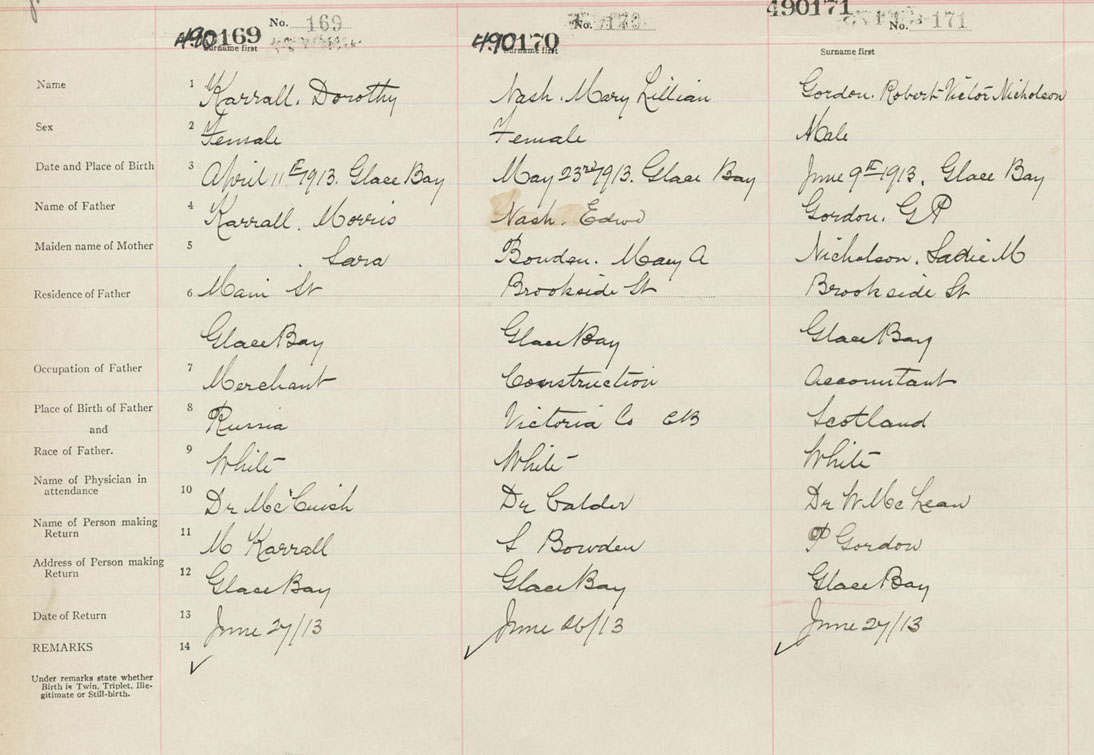 No. 169 No. 170 490171 No. 171
490169 490170
Surname first Surname first Surname first
Name 1 Karrall. Dorothy Nash. Mary Lillian Gordon. Robert Victor Nicholson
Sex 2 Female Female Male
Date and Place of Birth 3 April 11th 1913. Glace Bay May 23rd 1913. Glace Bay June 9th 1913. Glace Bay
Name of Father 4 Karrall. Morris Nash. Edwd Gordon. G P
Maiden name of Mother 5 . Sara Bowden. Mary A Nicholson. Sadie M
Residence of Father 6 Main St Brookside St Brookside St
Glace Bay Glace Bay Glace Bay
Occupation of Father 7 Merchant Construction Accountant
Place of Birth of Father 8 Russia Victoria Co CB Scotland
and
Race of Father. 9 White White White
Name of Physician in
attendance 10 Dr McCuish Dr Calder Dr W McLean
Name of Person making
Return 11 M Karrall S Bowden P Gordon
Address of Person making
Return 12 Glace Bay Glace Bay Glace Bay
Date of Return 13 June 27/13 June 26/13 June 27/13
REMARKS 14
Under remarks state whether
Birth is Twin, Triplet, Ille-
gitimate or Still-birth.